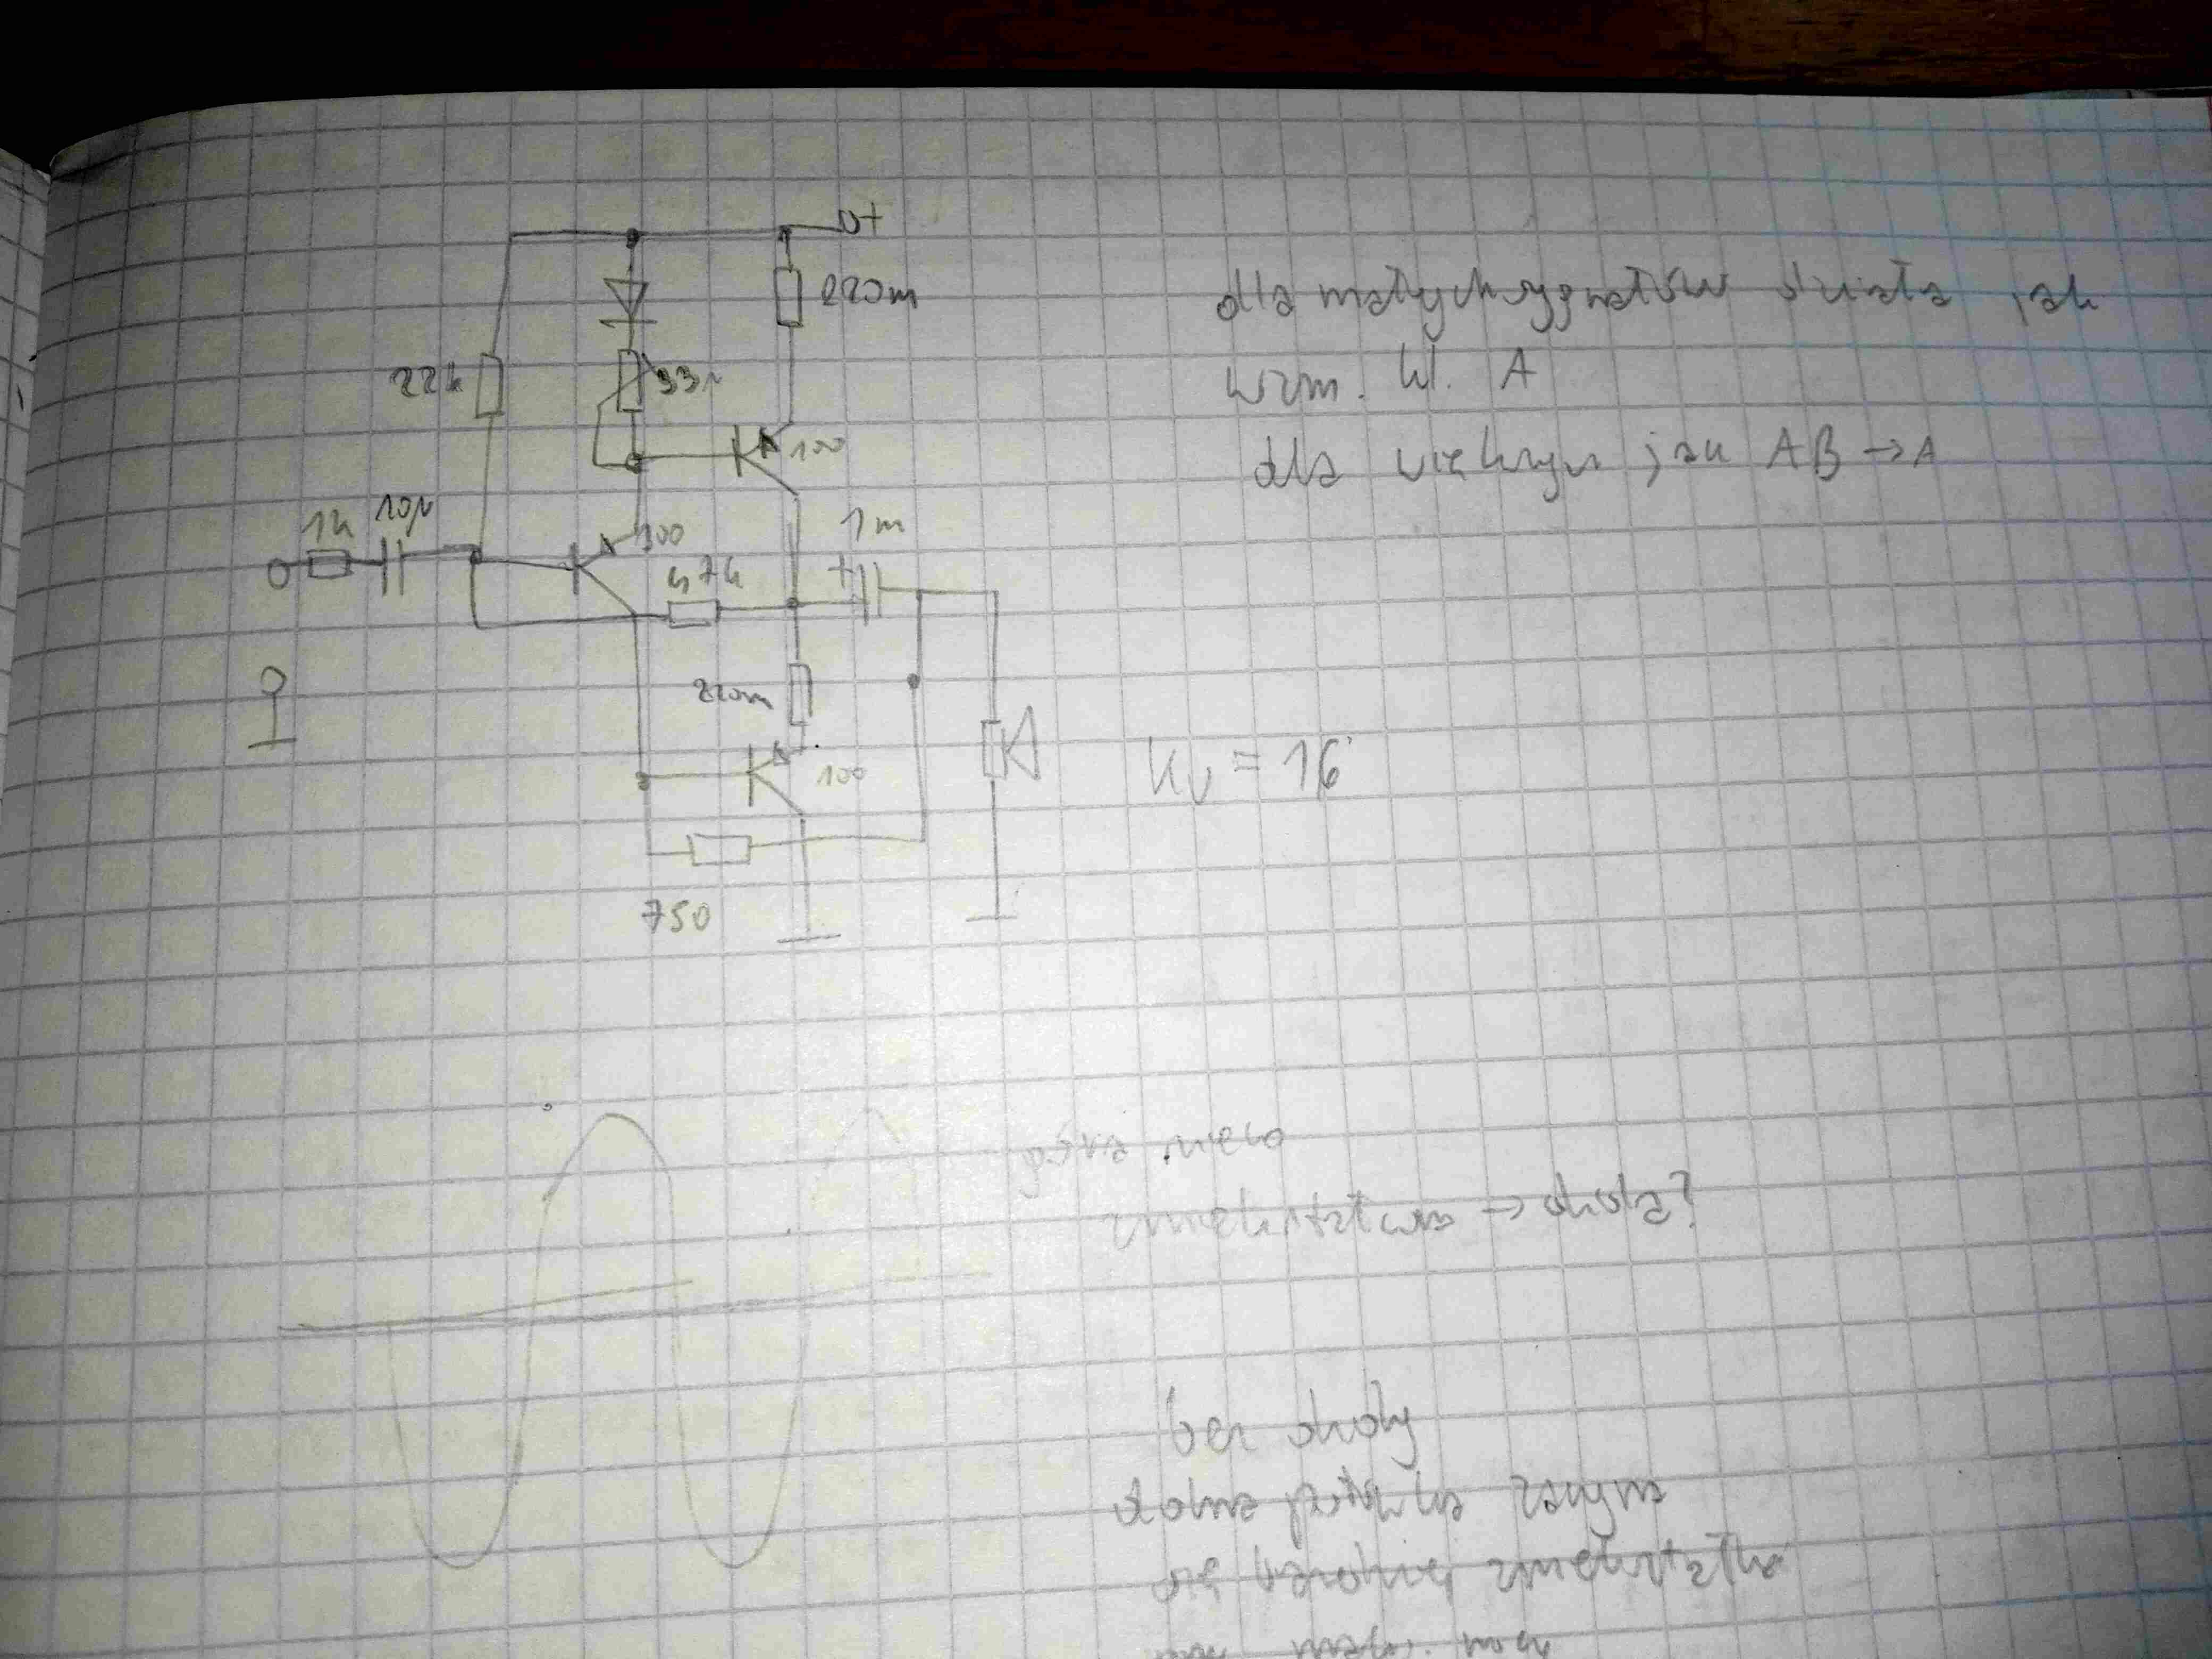 U+
220m
22k
33r
100
1k 10µ
100
1m
47k
220m
100
750
dla małych sygnałów działa jak
wzm. kl. A
dla większych jak AB → A
ku = 16
góra nieco
zniekształcona → dioda?
bez diody
dolna połówka zaczyna
się bardziej zniekształcać